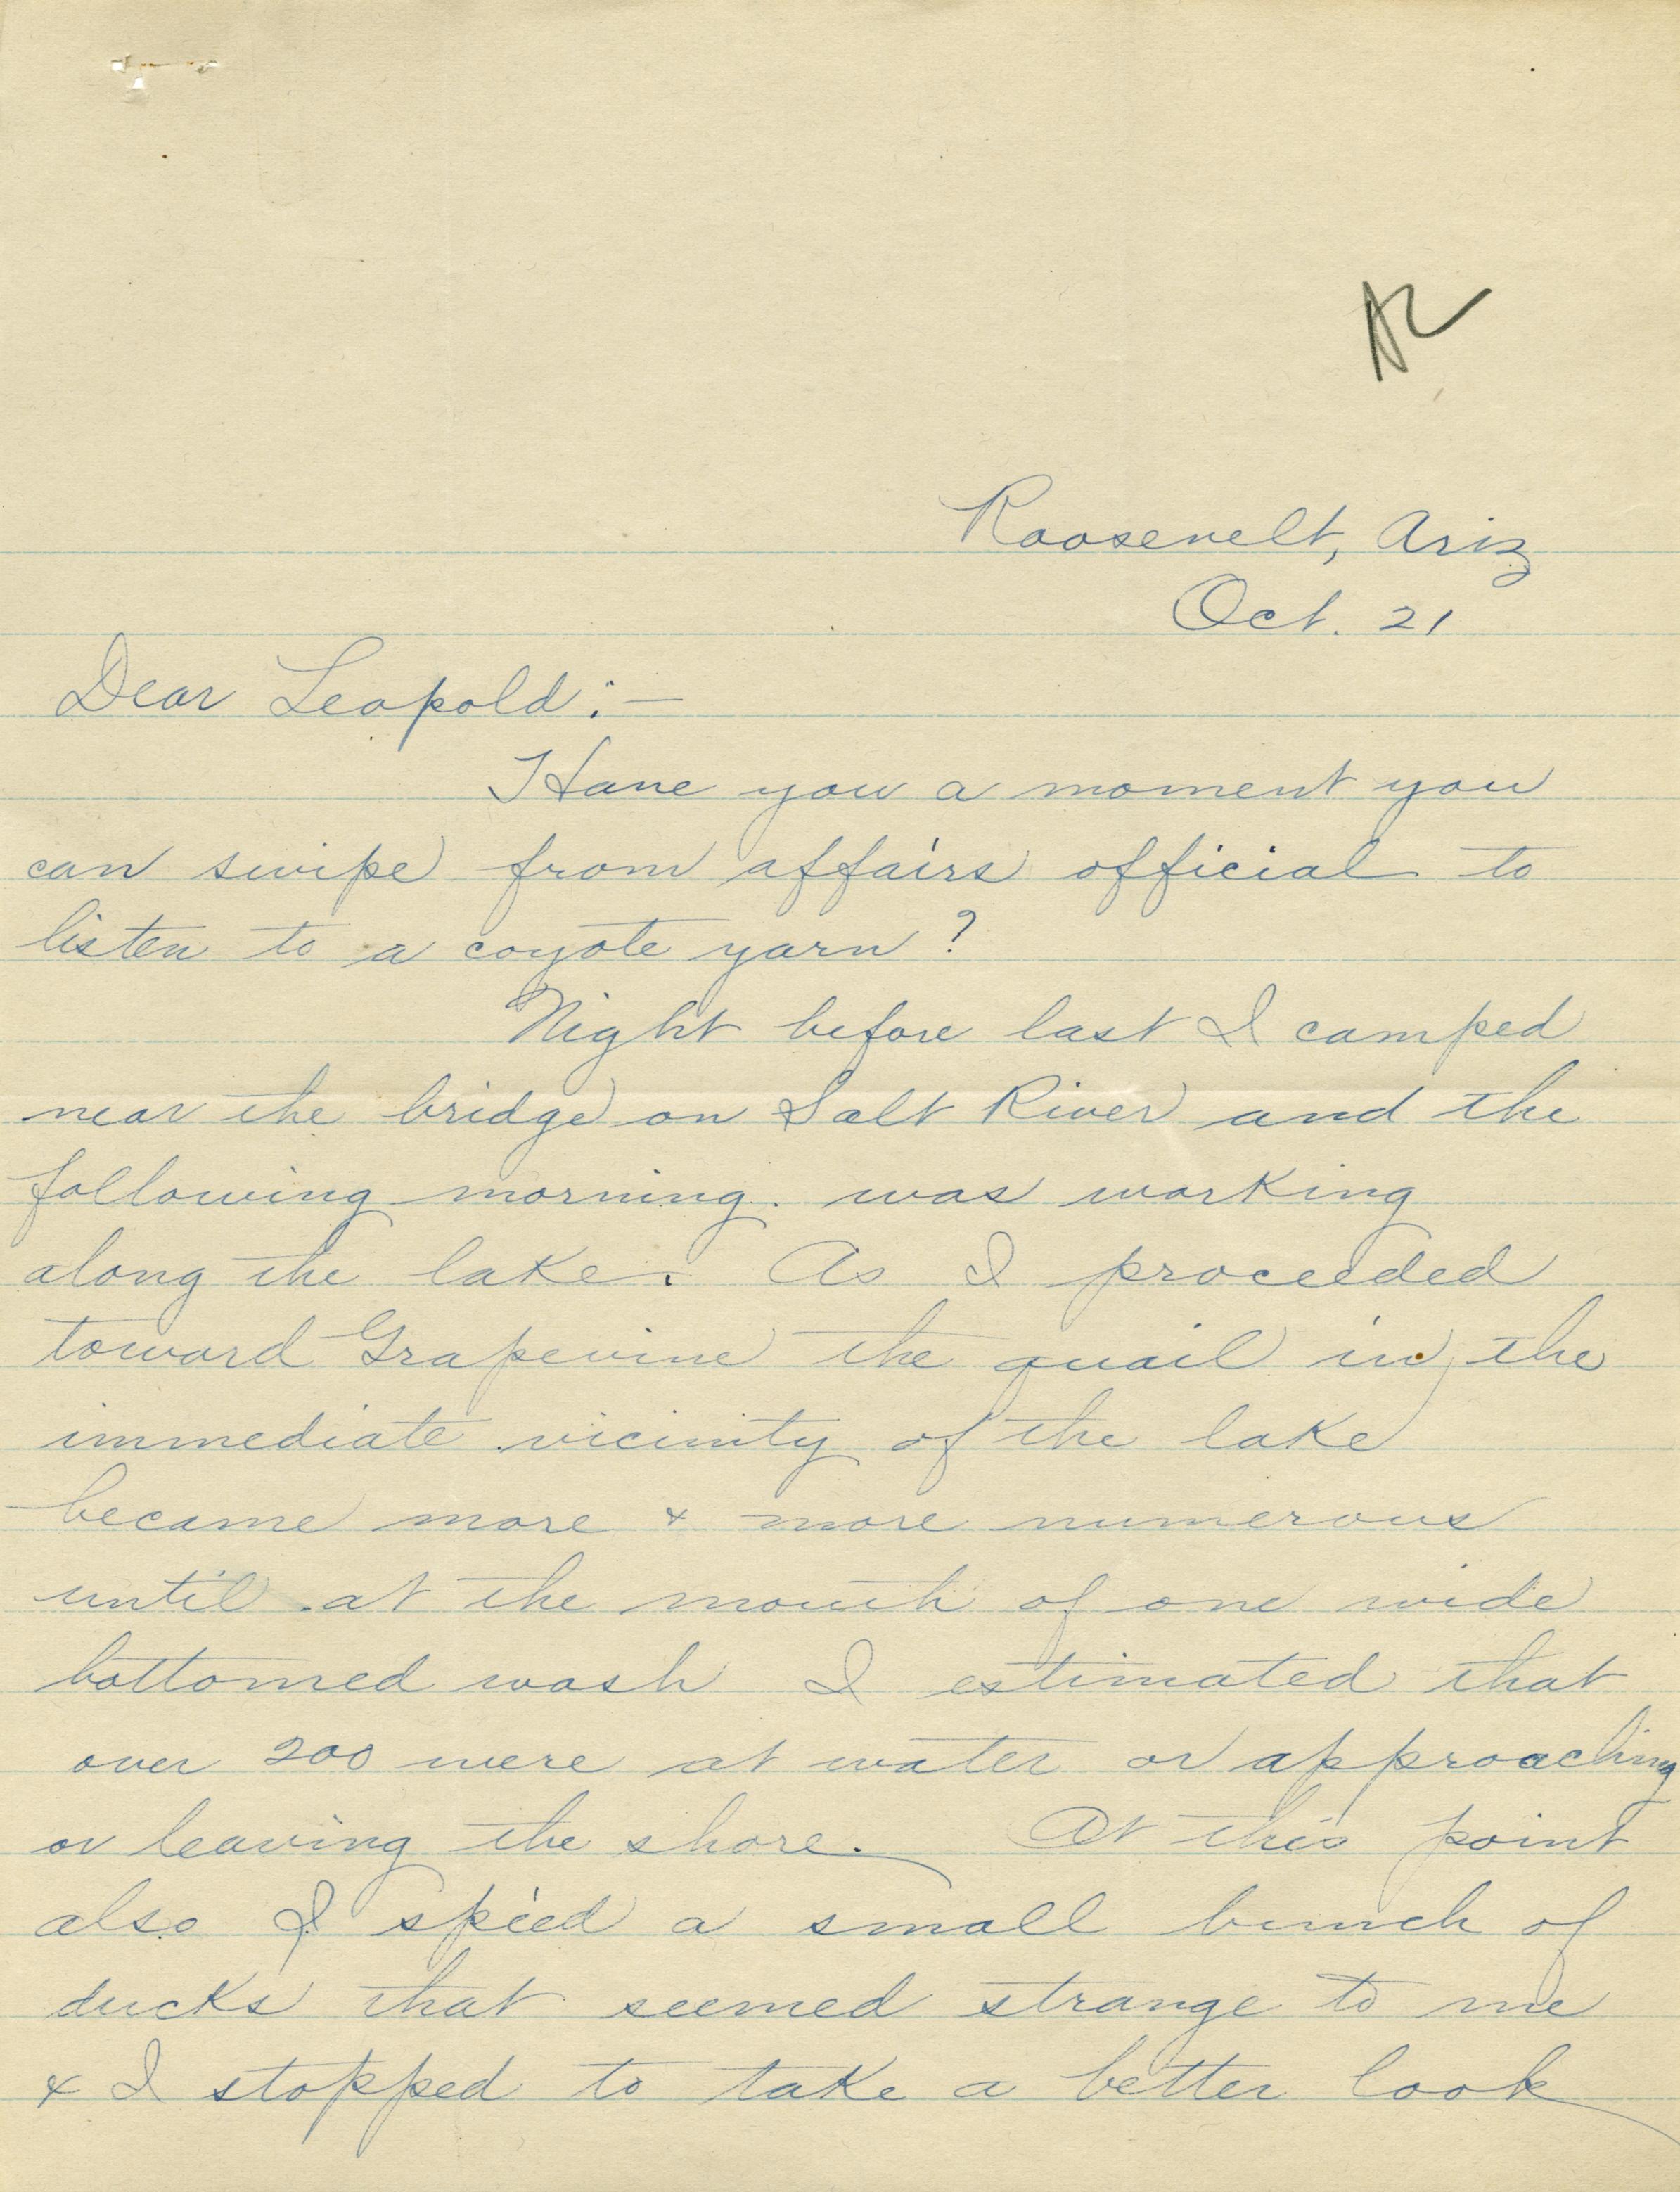 AL
Roosevelt, Ariz
Oct. 21
Dear Leopold:—
Have you a moment you
can swipe from affairs official to
listen to a coyote yarn?
Night before last I camped
near the bridge on Salt River and the
following morning. was working
along the lake. As I proceeded
toward Grapevine the quail in the
immediate vicinity of the lake
became more & more numerous
until at the mouth of one wide
bottomed wash I estimated that
over 200 were at water or approaching
or leaving the shore. At this point
also I spied a small bunch of
ducks that seemed strange to me
& I stopped to take a better look